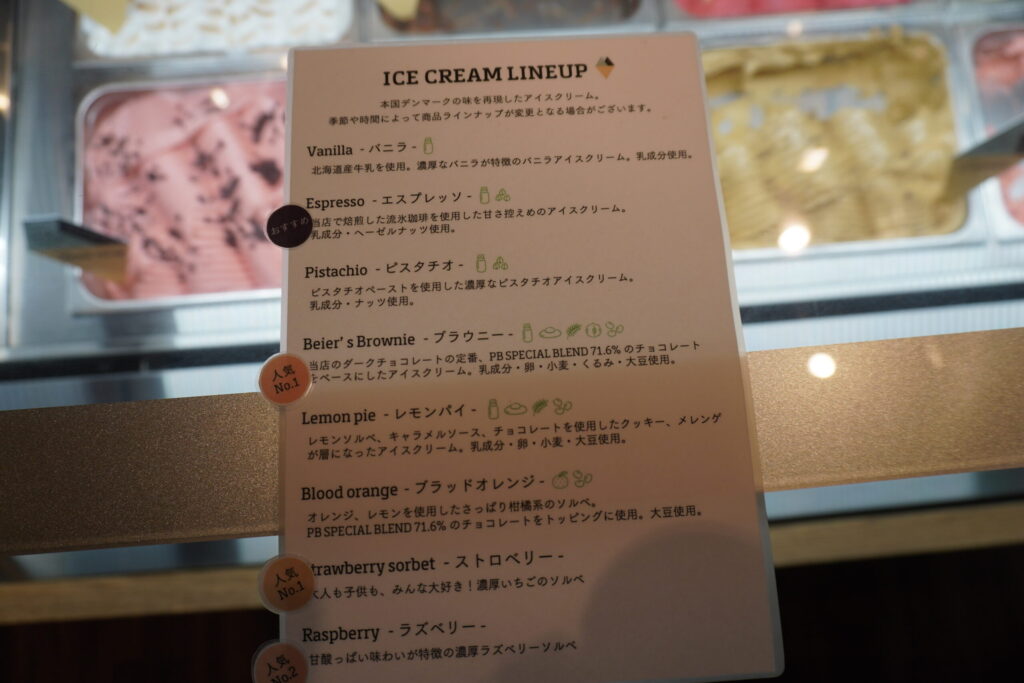 ICE CREAM LINEUP
本国デンマークの味を再現したアイスクリーム。
季節や時間によって商品ラインナップが変更となる場合がございます。
Vanilla - バニラ -
北海道産牛乳を使用。濃厚なバニラが特徴のバニラアイスクリーム。乳成分使用。
Espresso - エスプレッソ -
おすすめ
当店で焙煎した流氷珈琲を使用した甘さ控えめのアイスクリーム。
乳成分・ヘーゼルナッツ使用。
Pistachio - ピスタチオ -
ピスタチオペーストを使用した濃厚なピスタチオアイスクリーム。
乳成分・ナッツ使用。
Beier's Brownie - ブラウニー -
人気
No.1
当店のダークチョコレートの定番、PB SPECIAL BLEND 71.6% のチョコレート
をベースにしたアイスクリーム。乳成分・卵・小麦・くるみ・大豆使用。
Lemon pie - レモンパイ -
レモンソルベ、キャラメルソース、チョコレートを使用したクッキー、メレンゲ
が層になったアイスクリーム。乳成分・卵・小麦・大豆使用。
Blood orange - ブラッドオレンジ -
オレンジ、レモンを使用したさっぱり柑橘系のソルベ。
PB SPECIAL BLEND 71.6% のチョコレートをトッピングに使用。大豆使用。
trawberry sorbet - ストロベリー -
人気
No.1
大人も子供も、みんな大好き！濃厚いちごのソルベ
Raspberry - ラズベリー -
人気
No.2
甘酸っぱい味わいが特徴の濃厚ラズベリーソルベ